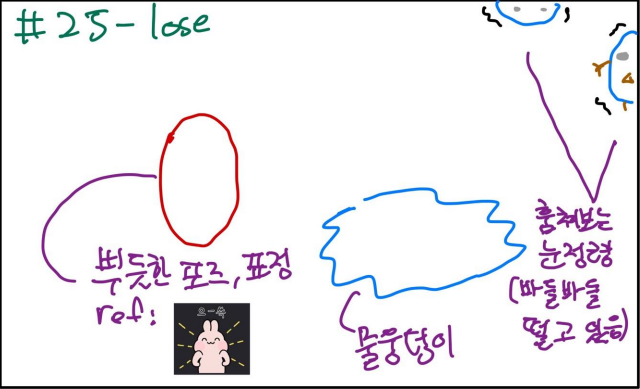 #25-lose
뿌듯한 포즈, 표정
ref:
으-쓱
물웅덩이
훔쳐보는
눈정령
(바들바들
떨고 있음)